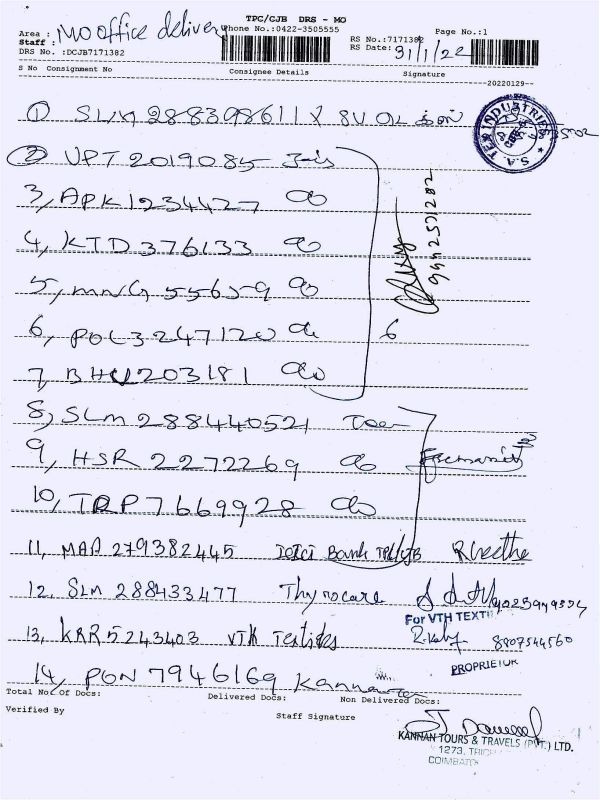 TPC/CJB DRS - MO
Area : MO office delivery Phone No.:0422-3505555 Page No.:1
Staff : RS No.:7171382
DRS No. :DCJB7171382 RS Date: 31/1/22
S No Consignment No Consignee Details Signature
--20220129--
① SLM 288398611 X
S.A. TEX INDUSTRIES
② VPT 2019085
3, APK 1234427 do
4, KTD 376133 do
9442531202
5, MNG 55659 do
6, POL 3247120 do 6
7, BHU 203181 do
8, SLM 288440521
9, HSR 2272269 do
10, TRP 7669928 do
11, MAA 279382445 ICICI Bank
12. SLM 288433477 Thyrocare
For VTH TEXTI
13, KRR 5243403 VTH Textiles 8807544560
PROPRIETOR
14, PON 7946169 Kannan
Total No. Of Docs: Delivered Docs: Non Delivered Docs:
Verified By Staff Signature
KANNAN TOURS & TRAVELS (PVT.) LTD.
1273, TRICH
COIMBATO